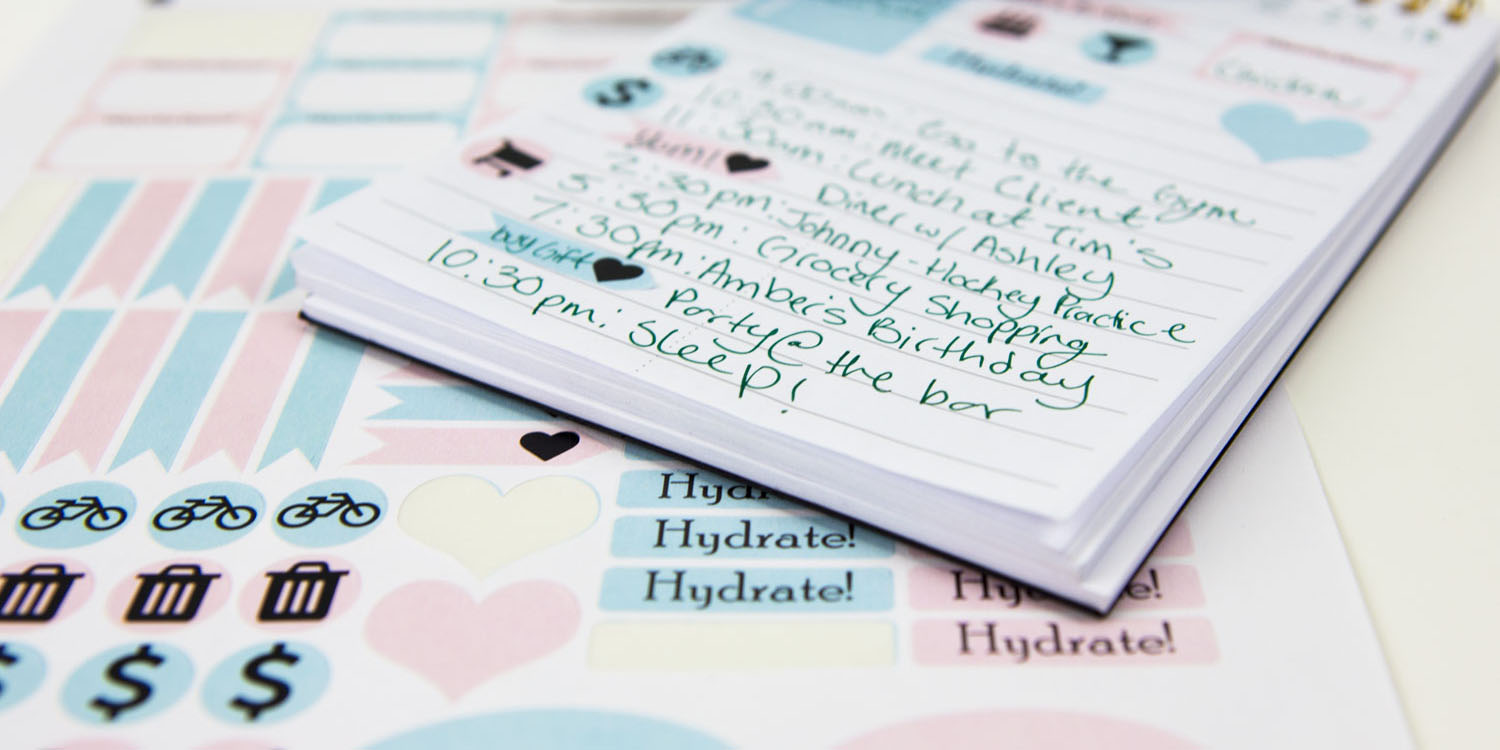 Hydrate!
9:00am: Go to the Gym
10:30am: Meet Client
11:30am: Lunch at Tim's
Yum!
Diner w/ Ashley
2:30pm: Johnny - Hockey Practice
5:30pm: Grocery Shopping
7:30pm: Amber's Birthday
buy Gift
Party @ the bar
10:30pm: Sleep!
$
Hydrate!
Hydrate!
Hydrate!
Hydrate!
$ $ $